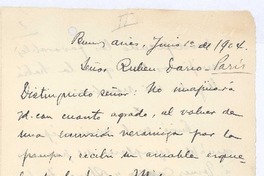 II
Buenos Aires, Junio 1º de 1904.
Señor Rubén Darío - París
Distinguido señor: No imaginará
Vd. con cuanto agrado, al volver de
una excursión veraniega por la
pampa, recibí su amable esque